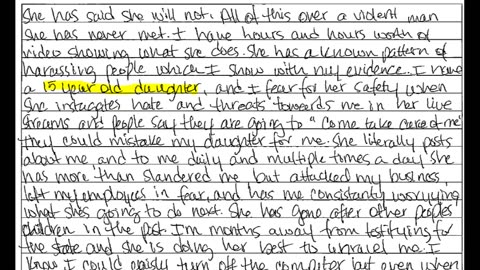 She has said she will not. All of this over a violent man
she has never met. I have hours and hours worth of
video showing what she does. She has a known pattern of
harassing people which I show with my evidence. I have
a 15 year old daughter, and I fear for her safety when
She instagates hate and threats towards me in her live
streams and people say they are going to "Come take care of me"
they could mistake my daughter for me. She literally posts
about me, and to me daily and multiple times a day. She
has more than slandered me but attacked my business
left my employees in fear, and has me consistantly worrying
what shes going to do next. She has gone after other peoples
children in the past I'm months away from testifying for
the state and she is doing her best to unravel me. I
know I could easily turn off the computer but even when